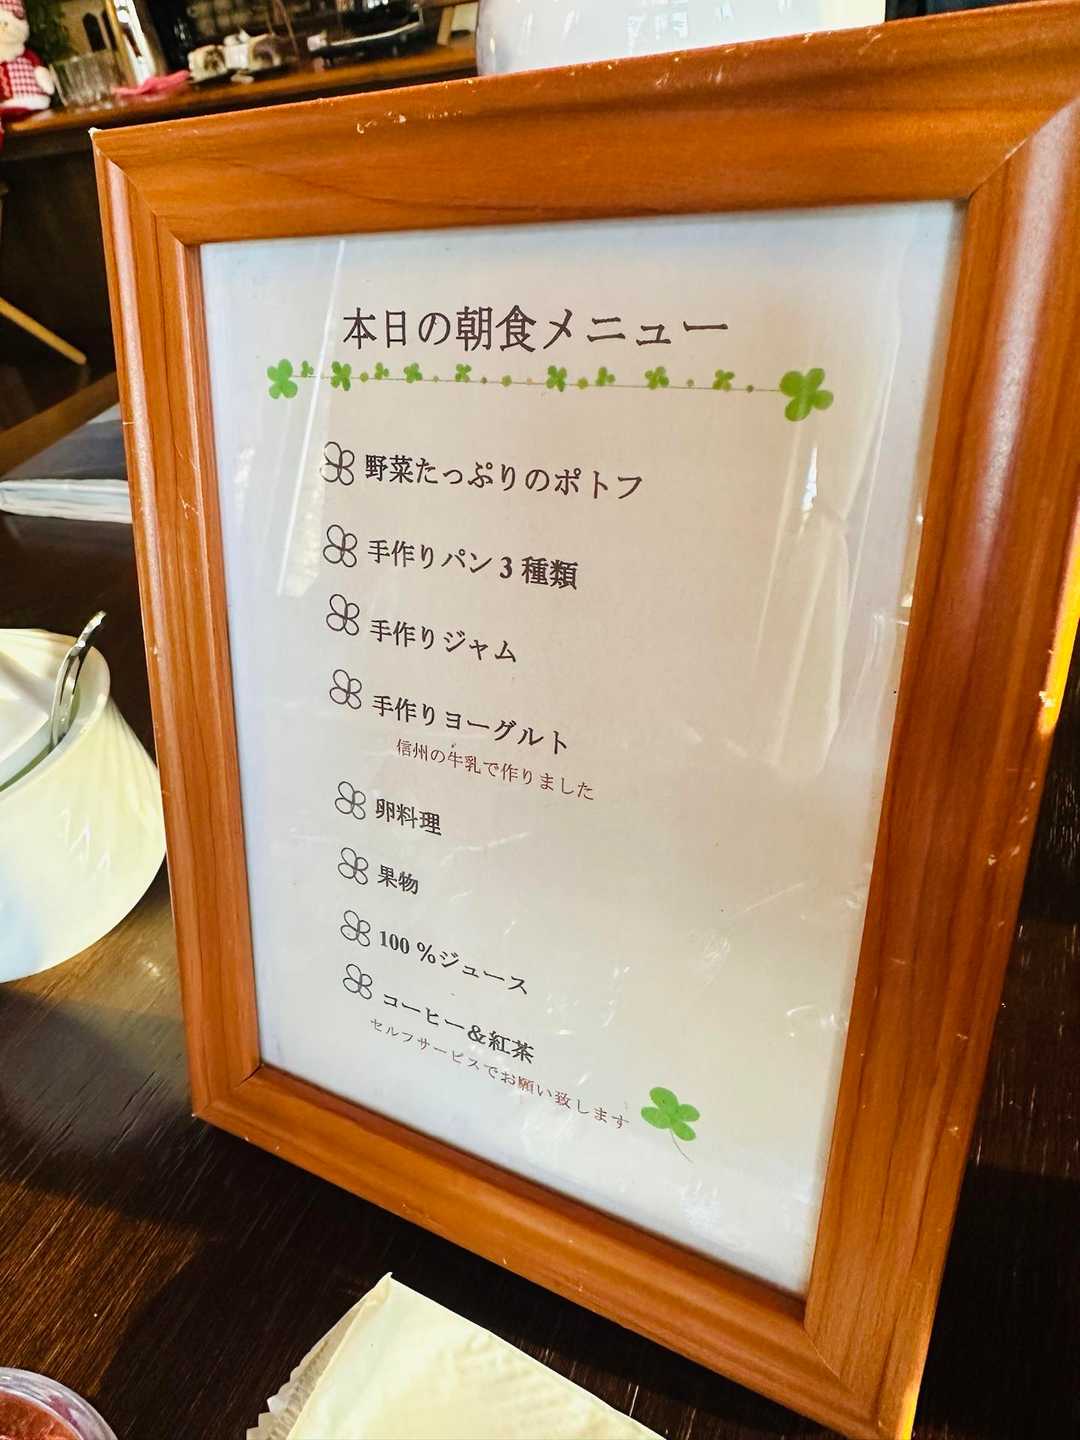 本日の朝食メニュー
野菜たっぷりのポトフ
手作りパン3種類
手作りジャム
手作りヨーグルト
信州の牛乳で作りました
卵料理
果物
100%ジュース
コーヒー&紅茶
セルフサービスでお願い致します